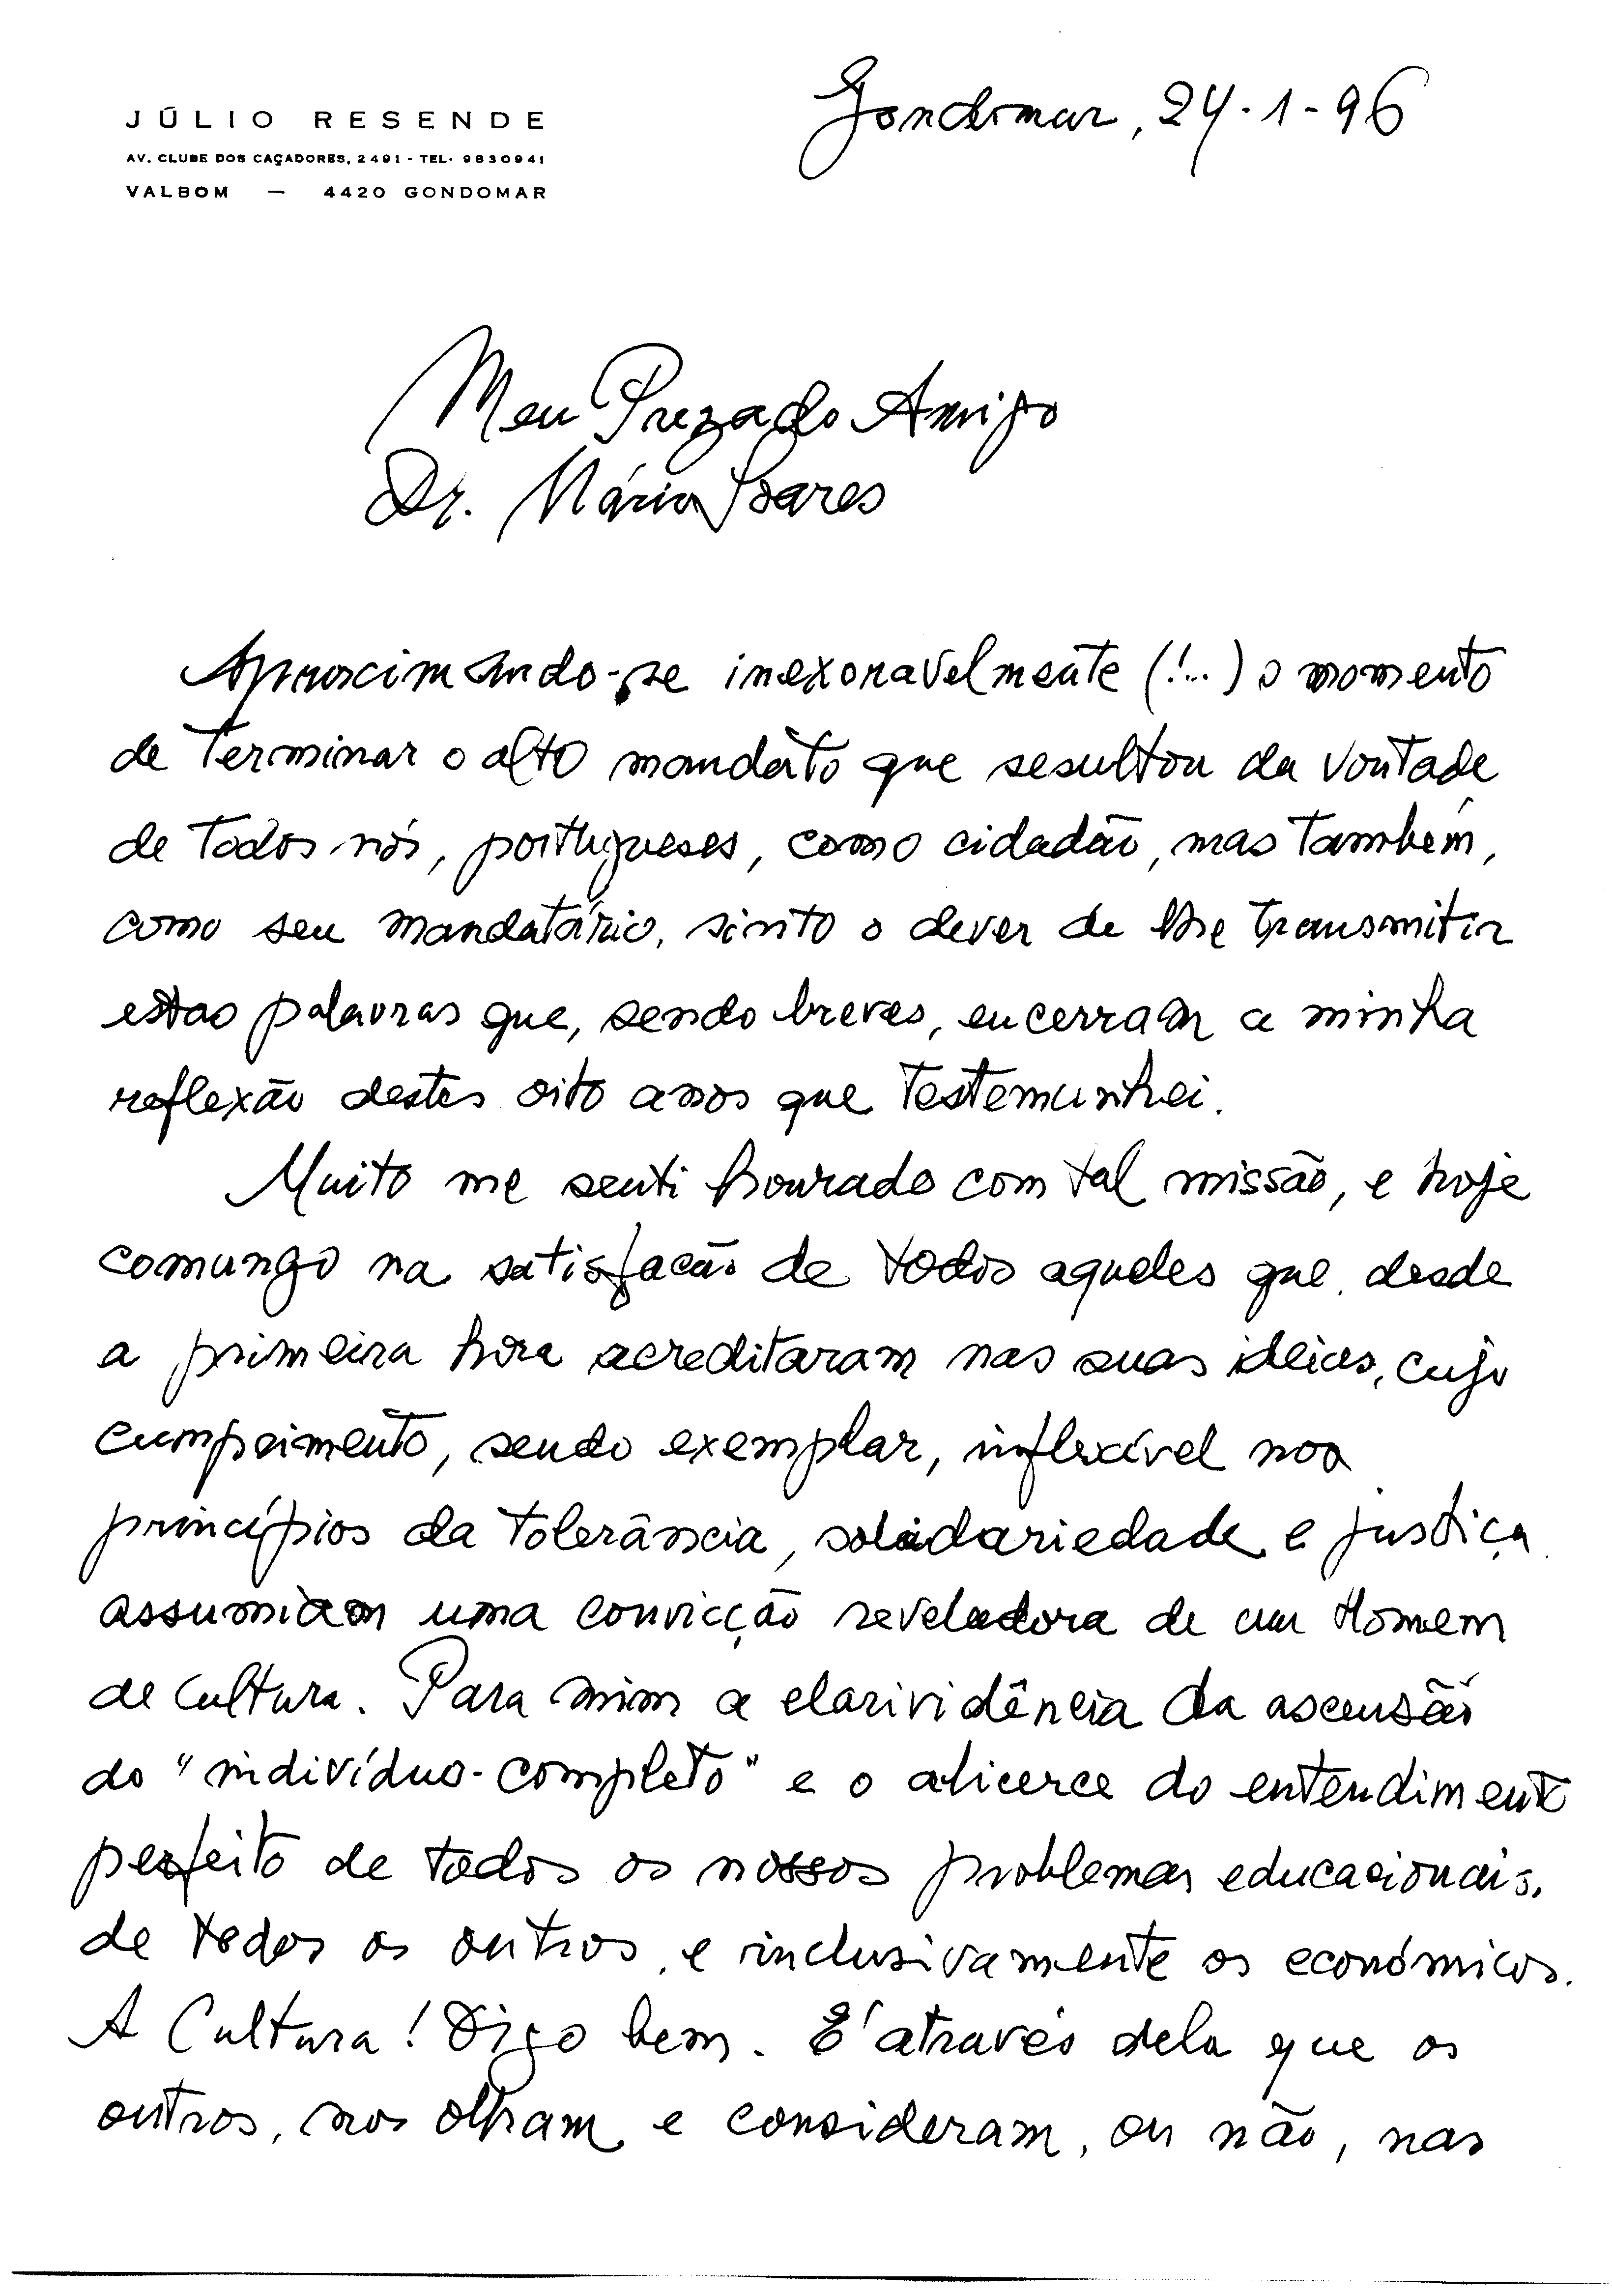 JÚLIO RESENDE
AV. CLUBE DOS CAÇADORES, 2491 - TEL. 9830941
VALBOM — 4420 GONDOMAR
Gondomar, 24-1-96
Meu Prezado Amigo
Dr. Mário Soares
Aproximando-se inexoravelmente (!...) o momento
de terminar o alto mandato que resultou da vontade
de todos nós, portugueses, como cidadão, mas também,
como seu mandatário, sinto o dever de lhe transmitir
estas palavras que, sendo breves, encerram a minha
reflexão destes oito anos que testemunhei.
Muito me senti honrado com tal missão, e hoje
comungo na satisfação de todos aqueles que, desde
a primeira hora acreditaram nas suas ideias, cujo
cumprimento, sendo exemplar, inflexível nos
princípios da tolerância, solidariedade e justiça
assumiam uma convicção reveladora de um Homem
de Cultura. Para mim a clarividência da ascensão
do "indivíduo-completo" e o alicerce do entendimento
perfeito de todos os nossos problemas educacionais,
de todos os outros, e inclusivamente os económicos.
A Cultura! Digo bem. É através dela que os
outros, nos olham e consideram, ou não, nas